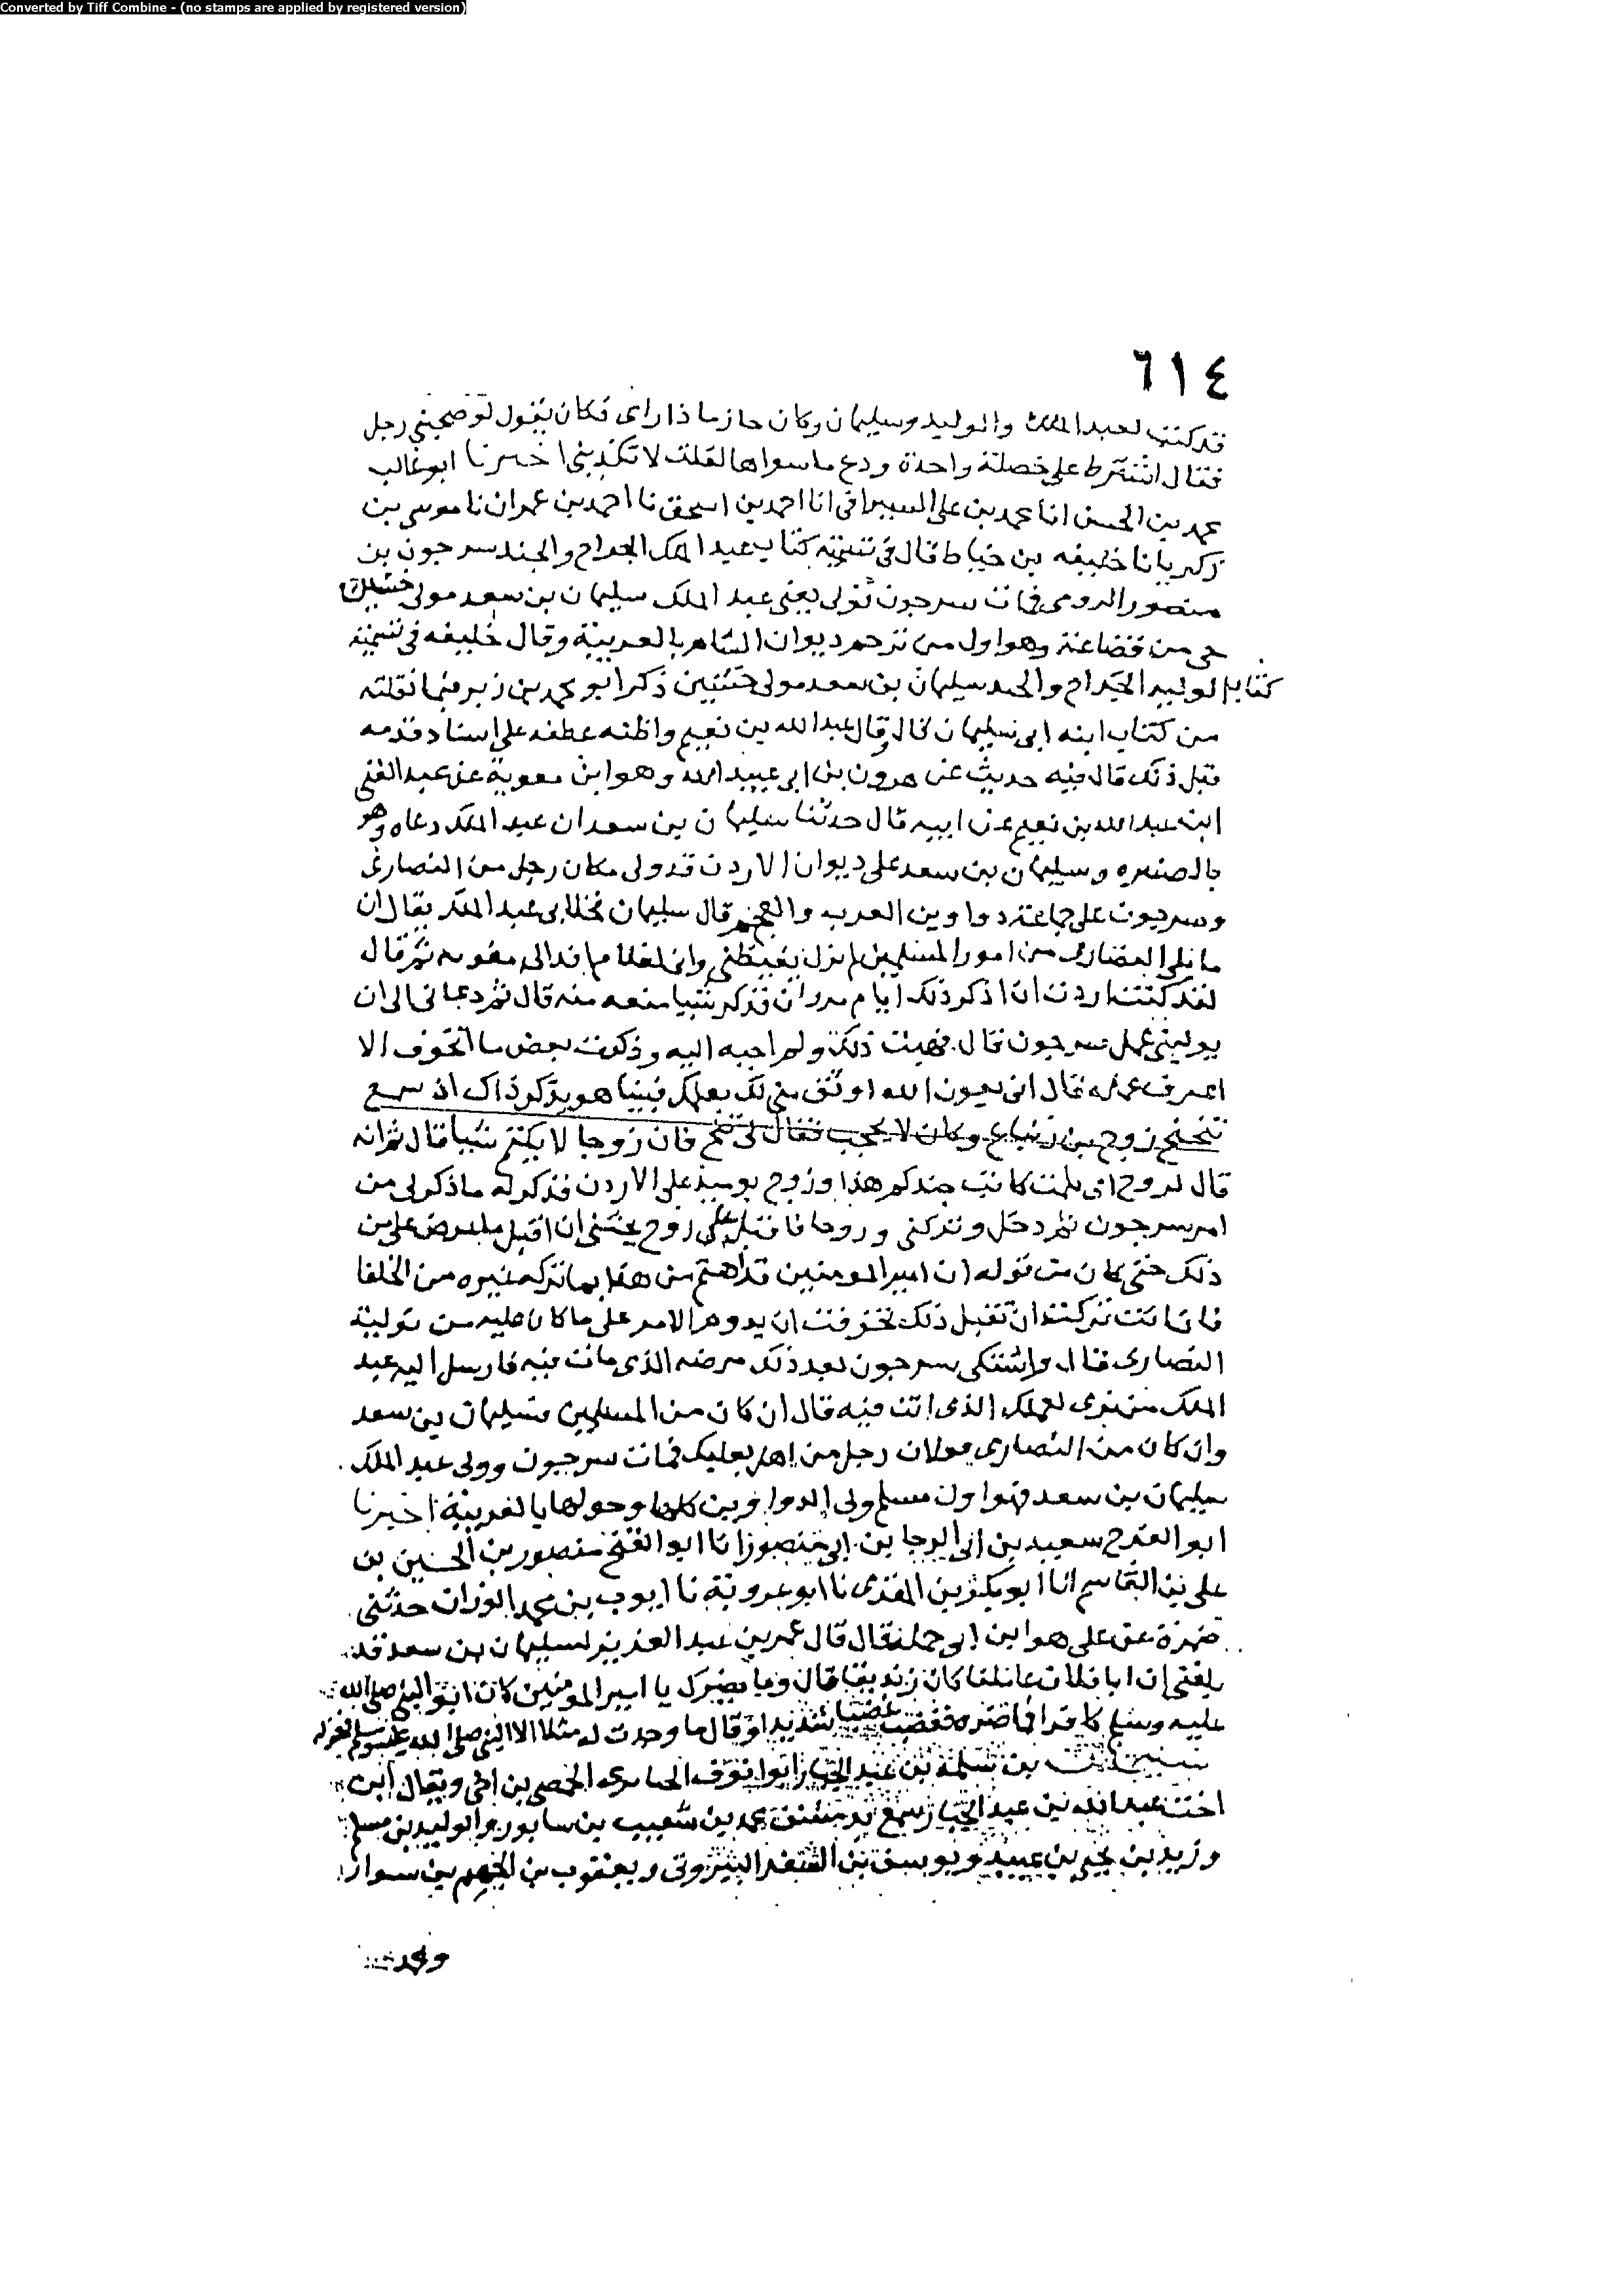 Converted by Tiff Combine - (no stamps are applied by registered version)
٦١٤
قد كتب لعبد الملك والوليد وسليمان وكان حازما ذا راى فكان يقول لو صحبنى رجل
فقال اشترط على خصلة واحدة ودع ما سواها لقلت لا تكذبنى اخبرنا ابو غالب
محمد بن الحسن انا محمد بن على السيرافى انا احمد بن اسحق نا احمد بن عمران نا موسى بن
زكريا نا خليفه بن خياط قال فى تسمية كتاب عبد الملك الخراج والجند سرجون بن
منصور الرومى فمات سرجون فولى يعنى عبد الملك سليمان بن سعد مولى خشين
حى من قضاعة وهو اول من ترجم ديوان الشام بالعربية وقال خليفه فى تسمية
كتاب الوليد الخراج والجند سليمان بن سعد مولى خشين ذكر ابو محمد بن زبر فيما نقلته
من كتاب ابنه ابى سليمان قال وقال عبد الله بن نعيم واظنه عطفه على اسناد قدمه
قبل ذلك قال فيه حديث عن هرون بن ابى عبيد الله وهو ابن معوية عن عبد الغنى
ابن عبد الله بن نعيم عن ابيه قال حدثنا سليمان بن سعد ان عبد الملك دعاه وهو
بالصنبره وسليمان بن سعد على ديوان الاردن قد ولى مكان رجل من النصارى
وسرجون على جماعة دواوين العرب والعجم قال سليمان فخلا بى عبد الملك فقال ان
ما يلى النصارى من امور المسلمين لم يزل يغيظنى وانى لغلام
لقد كنت اردت ان اذكر ذلك ايام مروان فذكر شيا منعه منه قال ثم دعانى الى ان
يولينى عمل سرجون قال فهبت ذلك ولم اجبه اليه وذكرت بعض ما اتخوف الا
اعرف عمله قال انى بعون الله اوثق منى لك بعملك فبينا هو يذكر ذاك اذ سمع
تنحنح روح بن زنباع وكان لا يحجب فقال لى تنح فان روحا لا يكتم شيا قال ثم انه
قال لروح انى بلوت كاتب جندكم هذا وروح يوميذ على الاردن فذكر له ما ذكر لى من
امر سرجون ثم دخل وتركنى وروحا فاقبل على روح يحثنى ان اقبل ما عرض على من
ذلك حتى كان من قوله ان امير المومنين قد اهتم من هذا بما تركه غيره من الخلفا
فان انت تركت ان تقبل ذلك تخوفت ان يدوم الامر على ما كان عليه من تولية
النصارى قال واشتكى سرجون بعد ذلك مرضه الذى مات فيه فارسل اليه عبد
الملك من ترى لعملك الذى انت فيه قال ان كان من المسلمين فسليمان بن سعد
وان كان من النصارى فولان رجل من اهل بعلبك فمات سرجون وولى عبد الملك
سليمان بن سعد فهو اول مسلم ولى الدواوين كلها وحولها بالعربية اخبرنا
ابو الفرج سعيد بن ابى الرجا بن ابى منصور انا ابو الفتح منصور بن الحسين بن
على بن القاسم انا ابو بكر بن المقرى نا ابو عروبة نا ايوب بن محمد الوزان حدثنى
ضمرة عن على هو ابن ابى حملة قال قال عمر بن عبد العزيز لسليمان بن سعد قد
بلغنى ان ابا فلان عاملنا كان زنديقا قال وما يضرك يا امير المومنين كان ابو النبى صلى الله
عليه وسلم كافرا فما ضره فغضب غضبا شديدا وقال ما وجدت له مثلا الا النبى صلى الله عليه وسلم فعزله
بن سلمة بن عبد الجبار ابو ايوب الخبايرى الحمصى بن اخى ويقال ابن
اخت عبد الله بن عبد الجبار سمع بدمشق محمد بن شعيب بن سابور والوليد بن مسلم
وزيد بن يحيى بن عبيد ويوسف بن السفر البيروتى ويعقوب بن الجهم بن سوار
ومحمد